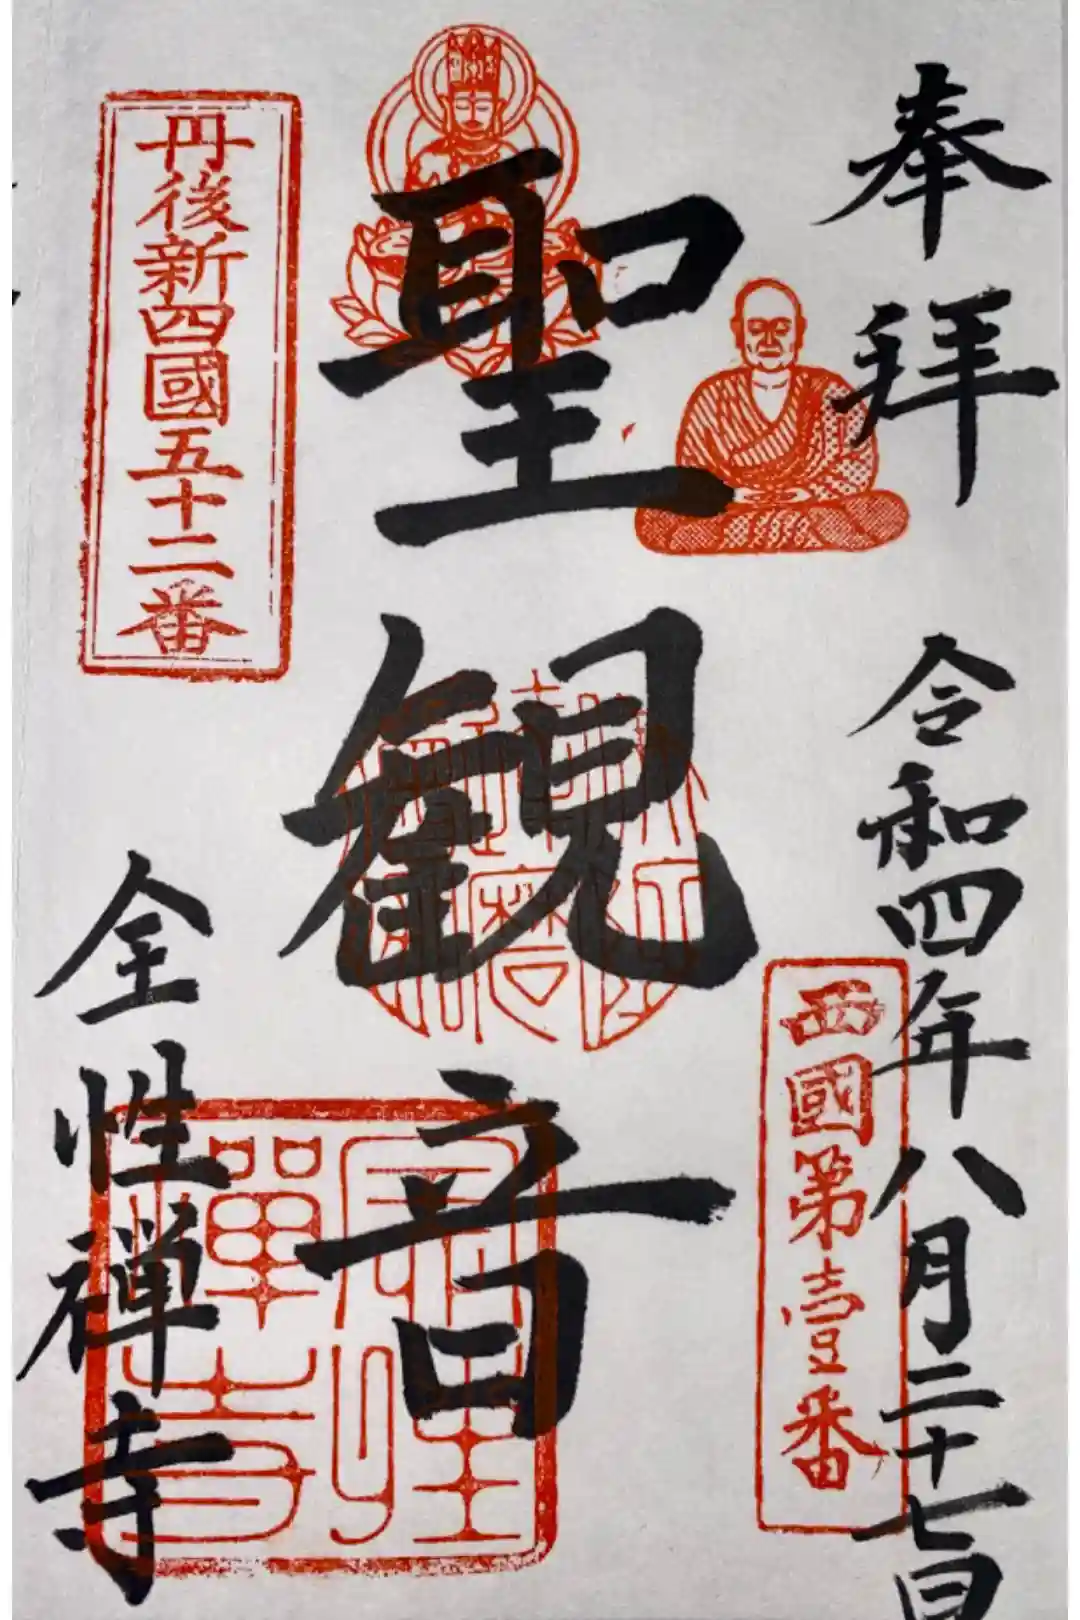 奉拝
令和四年八月二十七日
西國第壹番
聖観音
性
禪寺
丹後新四國五十二番
全性禅寺